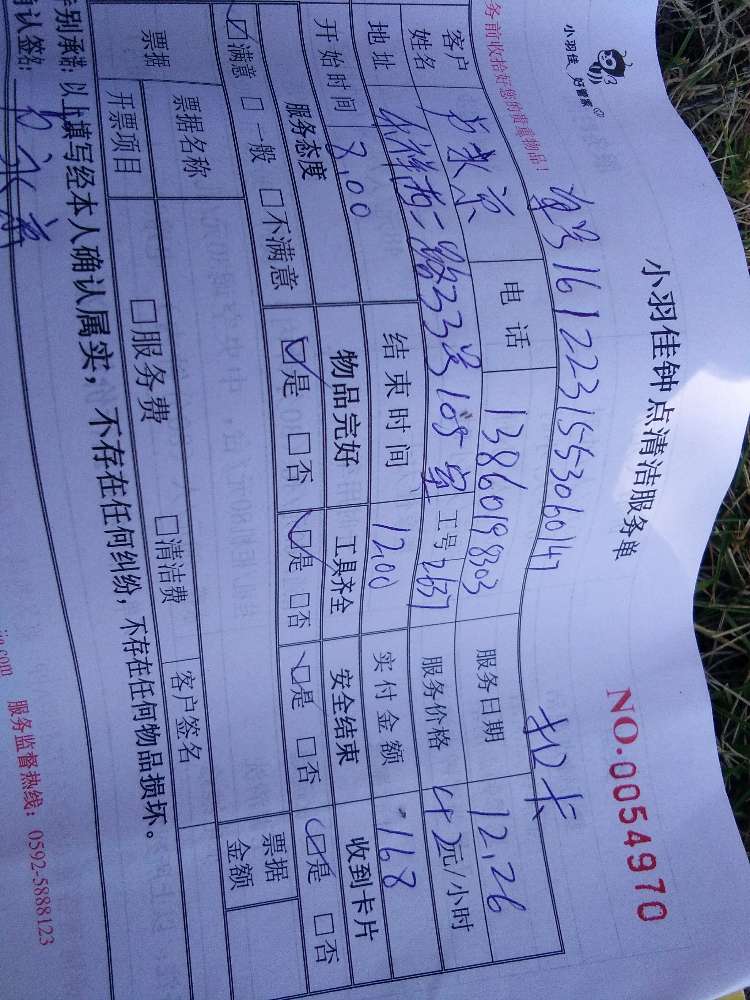 小羽佳 好管家
小羽佳钟点清洁服务单
NO.0054970
务前收拾好您的贵重物品!
单号161223155306014 扣卡
客户姓名 电话 13860198303 服务日期 12.26
地址 祥西二路33号105室 工号2637 服务价格 42元/小时
开始时间 8.00 结束时间 12.00 实付金额 168
服务态度 物品完好 工具齐全 安全结束 收到卡片
☑满意 □一般 □不满意 ☑是 □否 ☑是 □否 ☑是 □否 ☑是 □否
票据 票据名称 □服务费 □清洁费 票据金额
开票项目 客户签名
特别承诺: 以上填写经本人确认属实, 不存在任何纠纷, 不存在任何物品损坏。
确认签名:
服务监督热线: 0592-5888123